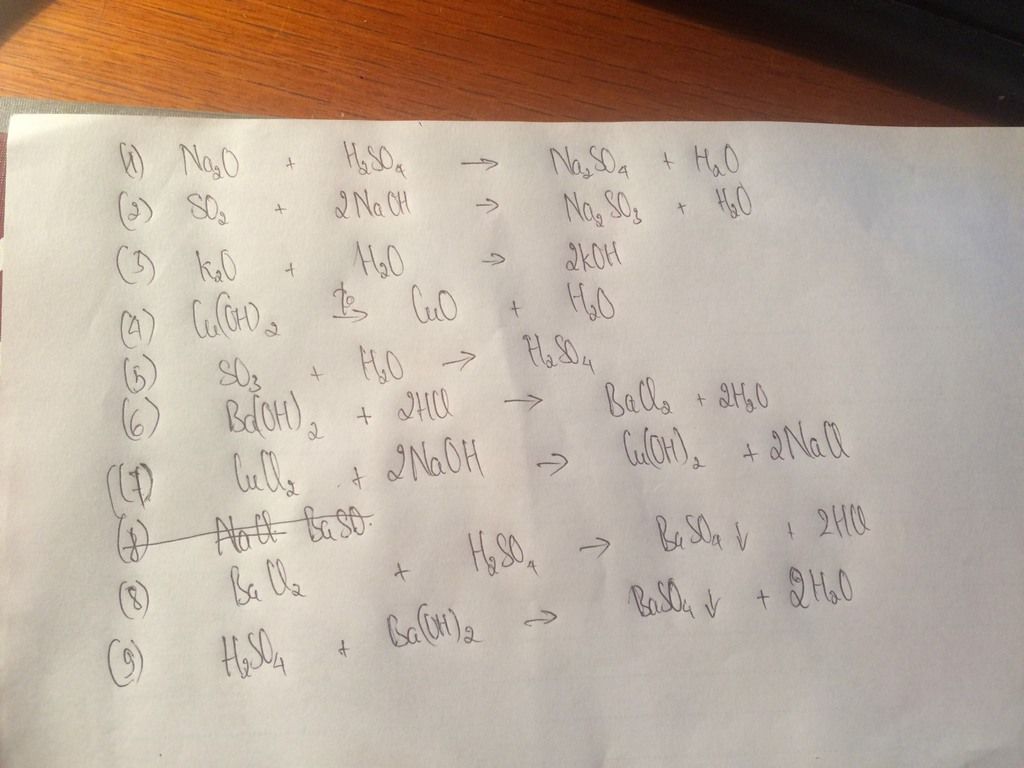 (1) Na₂O + H₂SO₄ → Na₂SO₄ + H₂O
(2) SO₂ + 2NaOH → Na₂SO₃ + H₂O
(3) K₂O + H₂O → 2KOH
(4) Cu(OH)₂ t°→ CuO + H₂O
(5) SO₃ + H₂O → H₂SO₄
(6) Ba(OH)₂ + 2HCl → BaCl₂ + 2H₂O
(7) CuCl₂ + 2NaOH → Cu(OH)₂ + 2NaCl
(8) NaCl BaSO
(8) BaCl₂ + H₂SO₄ → BaSO₄↓ + 2HCl
(9) H₂SO₄ + Ba(OH)₂ → BaSO₄↓ + 2H₂O